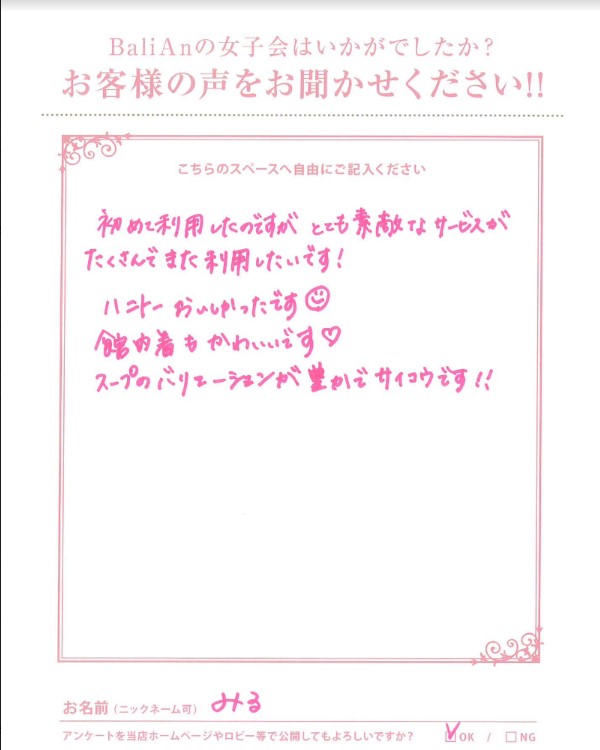 BaliAnの女子会はいかがでしたか?
お客様の声をお聞かせください!!
こちらのスペースへ自由にご記入ください
初めて利用したのですが とても素敵なサービスが
たくさんでまた利用したいです!
ハニトー おいしかったです☺
館内着もかわいいです♡
スープのバリエーションが豊かでサイコウです!!
お名前(ニックネーム可) みる
アンケートを当店ホームページやロビー等で公開してもよろしいですか? ☑OK / ☐NG